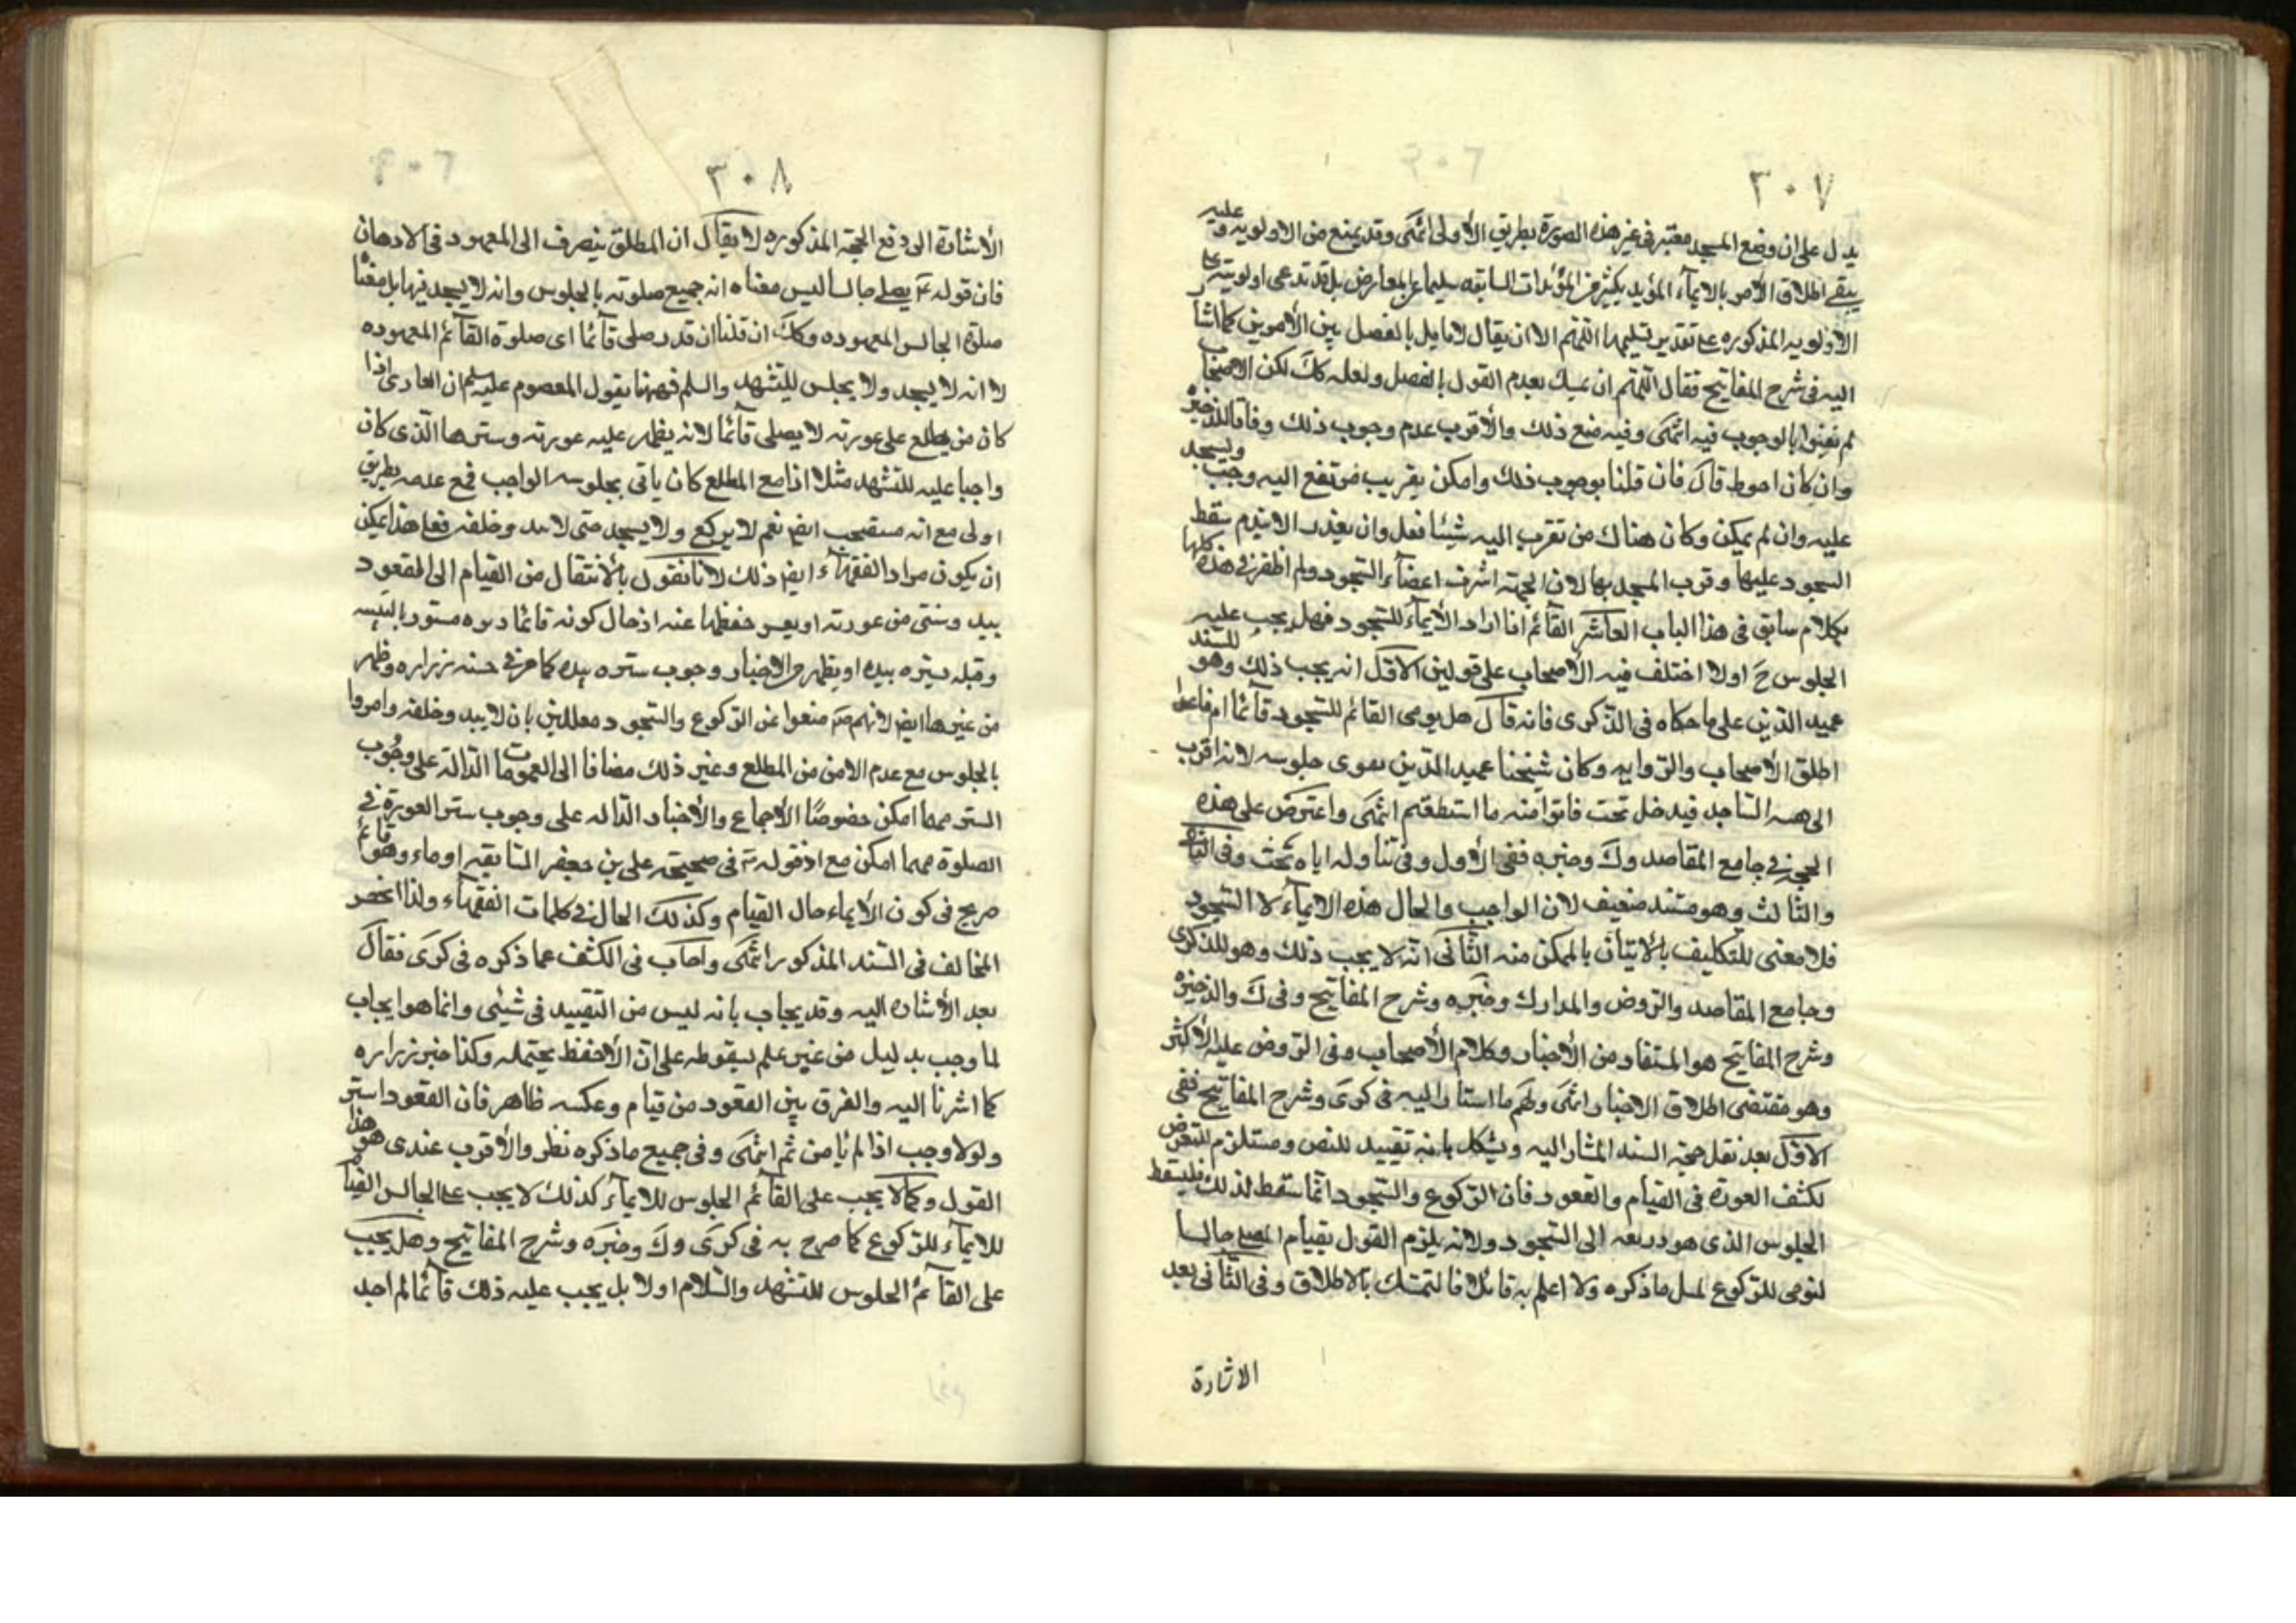 ٣٠٧
يدل على ان وضع المسجد معتبر فى غير هذه الصورة بطريق الأولى انتهى وقد يمنع من الاولويه وعليه
يبقى اطلاق الأمر بالايمآء المؤيد بكثير من المؤيدات السابقه سليما عن المعارض بل قد تدعى اولويته على
الاولويه المذكوره على تقدير تسليمها اللهم الا ان يقال لا قايل بالفصل بين الأمرين كما اشار
اليه فى شرح المفاتيح فقال اللهم ان يتمسك بعدم القول بالفصل ولعله كك لكن الاصحاب
لم يفتوا بالوجوب فيه انتهى وفيه منع ذلك والأقرب عدم وجوب ذلك وفاقا للذخيره
وان كان احوط قال فان قلنا بوجوب ذلك وامكن تقريب مرتفع اليه وجب ويسجد
عليه وان لم يمكن وكان هناك من تقرب اليه شيئا فعل وان تعذر الا بيديه سقط
السجود عليها وقرب المسجد بها لان الجبهة اشرف اعضآء السجود ولم اظفر فى هذه كلها
بكلام سابق فى هذا الباب العاشر القآئم اذا اراد الأيمآء للسجود فهل يجب عليه
الجلوس ح اولا اختلف فيه الأصحاب على قولين الاول انه يجب ذلك وهو للسيد
عميد الدين على ما حكاه فى الذكرى فانه قال هل يومى القائم للسجود قآئما ام قاعدا
اطلق الأصحاب والروايه وكان شيخنا عميد الدين يقوى جلوسه لانه اقرب
الى هيئه الساجد فيدخل تحت فاتوا منه ما استطعتم انتهى واعترض على هذه
الحجة فى جامع المقاصد وك وخيره ففى الأول وفى تناوله اياه بحث وفى الثانى
والثالث وهو مستند ضعيف لان الواجب والحال هذه الايمآء لا السجود
فلا معنى للتكليف بالاتيان بالممكن منه الثانى انه لا يجب ذلك وهو للذكرى
وجامع المقاصد والروض والمدارك وخيره وشرح المفاتيح وفى ك والذخيره
وشرح المفاتيح هو المستفاد من الأخبار وكلام الأصحاب وفى الروض عليه الأكثر
وهو مقتضى اطلاق الاخبار انتهى ولهم ما اشار اليه فى كرى وشرح المفاتيح ففى
الاول بعد نقل حجة السيد المشار اليه ويشكل بانه تقييد للنص ومستلزم للتعرض
لكشف العورة فى القيام والقعود فان الركوع والسجود انما سقط لذلك فليسقط
الجلوس الذى هو ذريعه الى السجود ولانه يلزم القول بقيام المصلى جالسا
ليومى للركوع لمثل ما ذكره ولا اعلم به قائلا فالتمسك بالاطلاق وفى الثانى بعد
الاشارة
٣٠٨
الأشارة الى دفع الحجة المذكوره لا يقال ان المطلق ينصرف الى المعهود فى الاذهان
فان قوله ع يصلى جالسا ليس معناه انه جميع صلوته بالجلوس وانه لا يسجد فيها بل معناه
صلوة الجالس المعهوده وكك ان قلنا ان قدر صلى قآئما اى صلوة القآئم المعهوده
لا انه لا يسجد ولا يجلس للتشهد والسلم فههنا يقول المعصوم عليه السلم ان العارى اذا
كان من يطلع على عورته لا يصلى قآئما لانه يظهر عليه عورته وسترها الذى كان
واجبا عليه للتشهد مثلا اذا مع المطلع كان ياتى بجلوسه الواجب فمع عدمه بطريق
اولى مع انه مستصحب ايض نعم لا يركع ولا يسجد حتى لا يبد وخلفه فعلى هذا يمكن
ان يكون مراد الفقهآء ايض ذلك لانا نقول بالانتقال من القيام الى القعود
يبد وشئى من عورته او يعسر حفظها عنه اذ حال كونه قائما دبره مستور باليتيه
وقبله يستره بيده او يظهر من الاخبار وجوب ستره بيده كما عرفت فى حسنه زراره وظهر
من غيرها ايض لانهم ع منعوا عن الركوع والسجود معللين بان لا يبد وخلفه وامروا
بالجلوس مع عدم الامن من المطلع وغير ذلك مضافا الى العمومات الدالة على وجوب
الستر مهما امكن خصوصًا الأجماع والأخبار الداله على وجوب ستر العورة فى
الصلوة مهما امكن مع اذ قوله ع فى صحيحة على بن جعفر السابقه اوماء وهو قائم
صريح فى كون الأيماء حال القيام وكذلك الحال فى كلمات الفقهآء ولذا انحصر
المخالف فى السيد المذكور انتهى واجاب فى الكشف عما ذكره فى كرى فقال
بعد الأشاره اليه وقد يجاب بانه ليس من التقييد فى شيئى وانما هو ايجاب
لما وجب بدليل من غير علم بسقوطه على ان الأحفظ يحتمله وكذا خبر زراره
كما اشرنا اليه والفرق بين القعود من قيام وعكسه ظاهر فان القعود استر
ولولا وجب اذا لم يأمن ثم انتهى وفى جميع ما ذكره نظر والأقرب عندى هو هذا
القول وكما لا يجب على القآئم الجلوس للايمآء كذلك لا يجب على الجالس القيام
للايمآء للركوع كما صرح به فى كرى وك وخيره وشرح المفاتيح وهل يجب
على القآئم الجلوس للتشهد والسلام اولا بل يجب عليه ذلك قآئما لم اجد